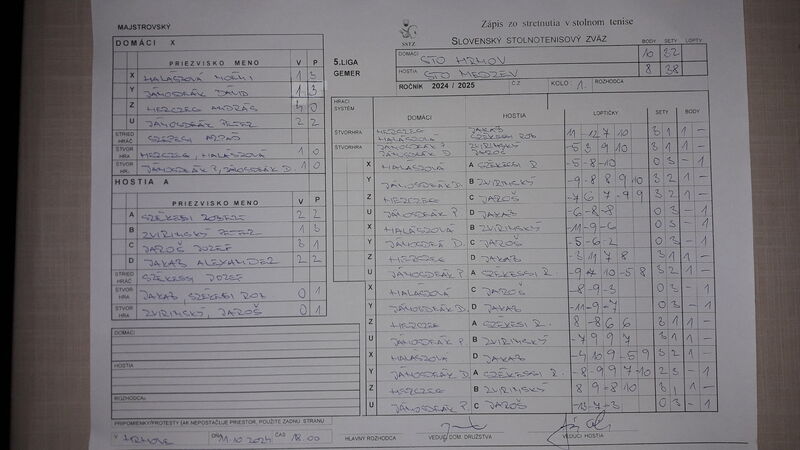 MAJSTROVSKÝ
DOMÁCI X
PRIEZVISKO MENO V P
X HALÁSZOVÁ NOÉMI 1 3
Y JÁNOSDEÁK DÁVID 1 3
Z HERCZEG ANDRÁS 4 0
U JÁNOSDEÁK PETER 2 2
STRIED. HRÁČ SZÉPESI ARPÁD
ŠTVOR HRA HERCZEG, HALÁSZOVÁ 1 0
ŠTVOR HRA JÁNOSDEÁK P, JÁNOSDEÁK D. 1 0
HOSTIA A
PRIEZVISKO MENO V P
A SZÉKESI ROBERT 2 2
B ZVIRINSKÝ PETER 1 3
C JAROŠ JOZEF 3 1
D JAKAB ALEXANDER 2 2
STRIED HRÁČ SZÉKESI JOZEF
ŠTVOR HRA JAKAB, SZÉKESI ROB 0 1
ŠTVOR HRA ZVIRINSKÝ, JAROŠ 0 1
DOMÁCI:
HOSTIA:
ROZHODCA:
PRIPOMIENKY/PROTESTY (AK NEPOSTAČUJE PRIESTOR, POUŽITE ZADNÚ STRANU
V HRHOVE DŇA 11.10 2024 ČAS 18.00
SSTZ
Zápis zo stretnutia v stolnom tenise
SLOVENSKÝ STOLNOTENISOVÝ ZVÄZ
BODY SETY LOPTY
5.LIGA
GEMER
DOMÁCI STO HRHOV 10 32
HOSTIA STO MEDZEV 8 38
ROČNÍK 2024 / 2025 ČZ KOLO: 1. ROZHODCA
HRACÍ SYSTÉM DOMÁCI HOSTIA LOPTIČKY SETY BODY
ŠTVORHRA HERCZEG HALÁSZOVÁ JAKAB SZÉKESI ROB 11 -12 7 10 3 1 1 -
ŠTVORHRA JÁNOSDEÁK P JÁNOSDEÁK D. ZVIRINSKÝ JAROŠ -5 3 9 10 3 1 1 -
X HALÁSZOVÁ A SZÉKESI R. -5 -8 -10 0 3 - 1
Y JÁNOSDEÁK D. B ZVIRINSKÝ -9 -8 8 9 10 3 2 1 -
Z HERCZEG C JAROŠ -7 6 7 -9 9 3 2 1 -
U JÁNOSDEÁK P. D JAKAB -6 -8 -8 0 3 - 1
X HALÁSZOVÁ B ZVIRINSKÝ -11 -9 -6 0 3 - 1
Y JÁNOSDEÁK D. C JAROŠ -5 -6 -2 0 3 - 1
Z HERCZEG D JAKAB -3 11 7 8 3 1 1 -
U JÁNOSDEÁK P. A SZÉKESI R. -9 4 10 -5 8 3 2 1 -
X HALÁSZOVÁ C JAROŠ -8 -9 -3 0 3 - 1
Y JÁNOSDEÁK D. D JAKAB -11 -9 -7 0 3 - 1
Z HERCZEG A SZÉKESI R. 8 -8 6 6 3 1 1 -
U JÁNOSDEÁK P. B ZVIRINSKÝ -7 9 9 7 3 1 1 -
X HALÁSZOVÁ D JAKAB -4 10 9 -5 9 3 2 1 -
Y JÁNOSDEÁK D. A SZÉKESI R. -8 -9 9 7 -10 2 3 - 1
Z HERCZEG B ZVIRINSKÝ 8 9 -8 10 3 1 1 -
U JÁNOSDEÁK P. C JAROŠ -13 -7 -3 0 3 - 1
HLAVNÝ ROZHODCA VEDÚCI DOM. DRUŽSTVA VEDÚCI HOSTIA